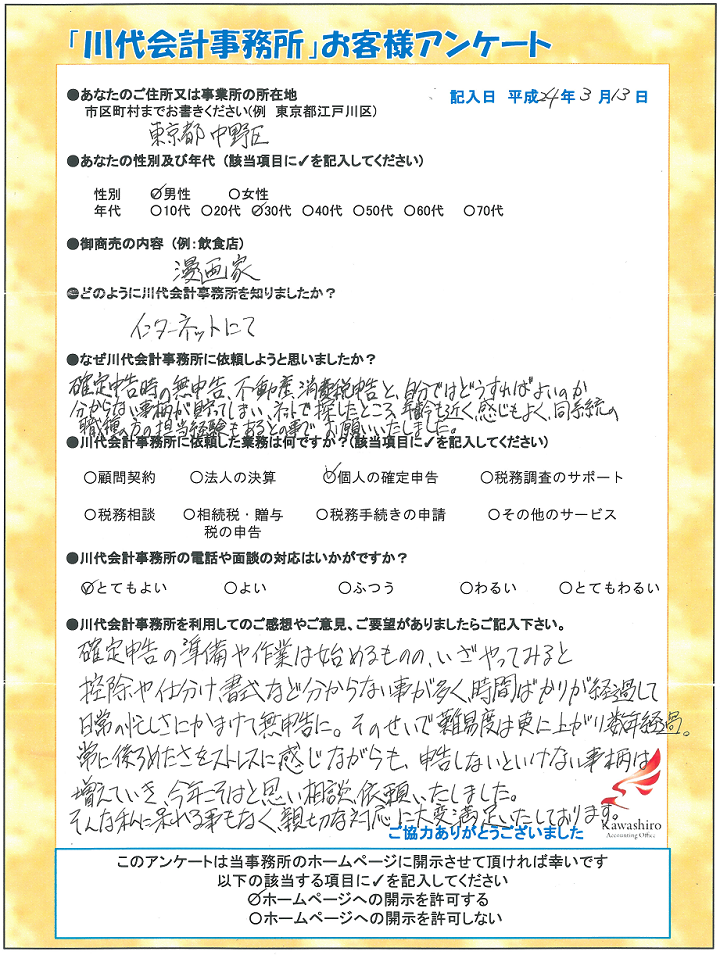 「川代会計事務所」お客様アンケート
●あなたのご住所又は事業所の所在地
記入日 平成24年3月13日
市区町村までお書きください(例 東京都江戸川区)
東京都中野区
●あなたの性別及び年代 (該当項目に✓を記入してください)
性別 ○男性 ○女性
年代 ○10代 ○20代 ○30代 ○40代 ○50代 ○60代 ○70代
●御商売の内容 (例:飲食店)
漫画家
●どのように川代会計事務所を知りましたか?
インターネットにて
●なぜ川代会計事務所に依頼しようと思いましたか?
確定申告時の無申告、不動産、消費税申告と、自分ではどうすればよいのか
分からない事柄が貯ってしまい、ネットで探したところ、年齢も近く、感じもよく、同系統の
職種の方の担当経験もあるとの事で お願いいたしました。
●川代会計事務所に依頼した業務は何ですか?(該当項目に✓を記入してください)
○顧問契約 ○法人の決算 ○個人の確定申告 ○税務調査のサポート
○税務相談 ○相続税・贈与 ○税務手続きの申請 ○その他のサービス
税の申告
●川代会計事務所の電話や面談の対応はいかがですか?
○とてもよい ○よい ○ふつう ○わるい ○とてもわるい
●川代会計事務所を利用してのご感想やご意見、ご要望がありましたらご記入下さい。
確定申告の準備や作業は始めるものの、いざやってみると
控除や仕分け、書式など分からない事が多く、時間ばかりが経過して
日常の忙しさにかまけて無申告に。そのせいで難易度は更に上がり数年経過。
常に後ろめたさをストレスに感じながらも、申告しないといけない事柄は
増えていき、今年こそはと思い相談、依頼いたしました。
そんな私に呆れる事もなく、親切な対応に大変満足いたしております。
ご協力ありがとうございました
Kawashiro
Accounting Office
このアンケートは当事務所のホームページに開示させて頂ければ幸いです
以下の該当する項目に✓を記入してください
○ホームページへの開示を許可する
○ホームページへの開示を許可しない